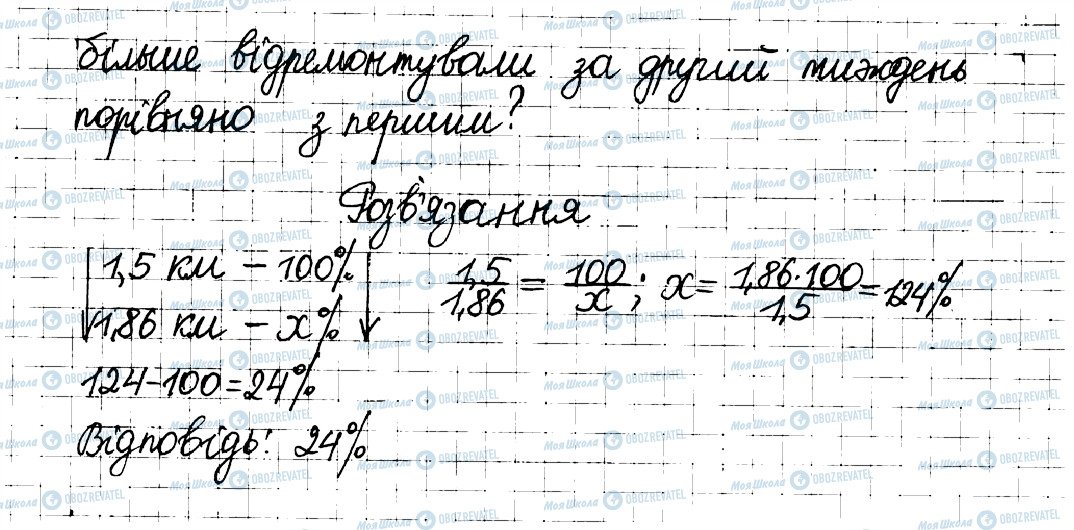 більше відремонтували за другий тиждень
порівняно з першим?
Розв'язання
1,5 км – 100%
1,86 км – x%
1,5/1,86 = 100/x; x = 1,86·100/1,5 = 124%
124–100=24%
Відповідь: 24%